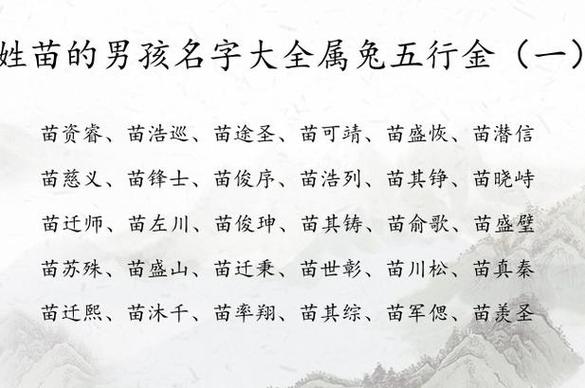 姓苗的男孩名字大全属兔五行金（一）
苗资睿、苗浩巡、苗途圣、苗可靖、苗盛恢、苗潜信
苗慈义、苗锋士、苗俊序、苗浩列、苗其铮、苗晓峙
苗迁师、苗左川、苗俊珅、苗其铸、苗俞歌、苗盛璧
苗苏殊、苗盛山、苗迁秉、苗世彰、苗川松、苗真秦
苗迁熙、苗沐千、苗率翔、苗其综、苗军偲、苗羡圣